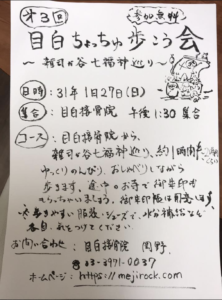 第3回
参加無料
目白ちょっちゅ歩こう会
〜雑司が谷七福神巡り〜
日時: 31年1月27日(日)
集合: 目白接骨院 午後1:30集合
コース: 目白接骨院から、
雑司が谷七福神巡り、約1時間半くらい
ゆっくりのんびり、おしゃべりしながら
歩きます。途中のお寺で御朱印も
もらっちゃいましょう。御朱印帳は用意します
歩きやすい服装・シューズで、水分補給など
各自、お持ちください
お問い合わせ: 目白接骨院 岡野
☎03-3971-0037
ホームページ: https://mejirock.com